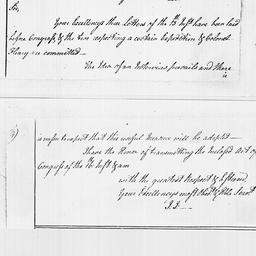 Sir,
Your Excellencys three Letters of the 7th Inst have been laid
before Congress, & the two respecting a certain Expedition & Colonel
Hazen committed—
The Idea of an Interview prevails and there
is
is reason to expect that this useful measure will be adopted—
I have the Honor of transmitting the inclosed Act of
Congress of the Inst & am
with the greatest Respect & Esteem
Your Excellencys most Obedt & Hble Servt
J.J.—